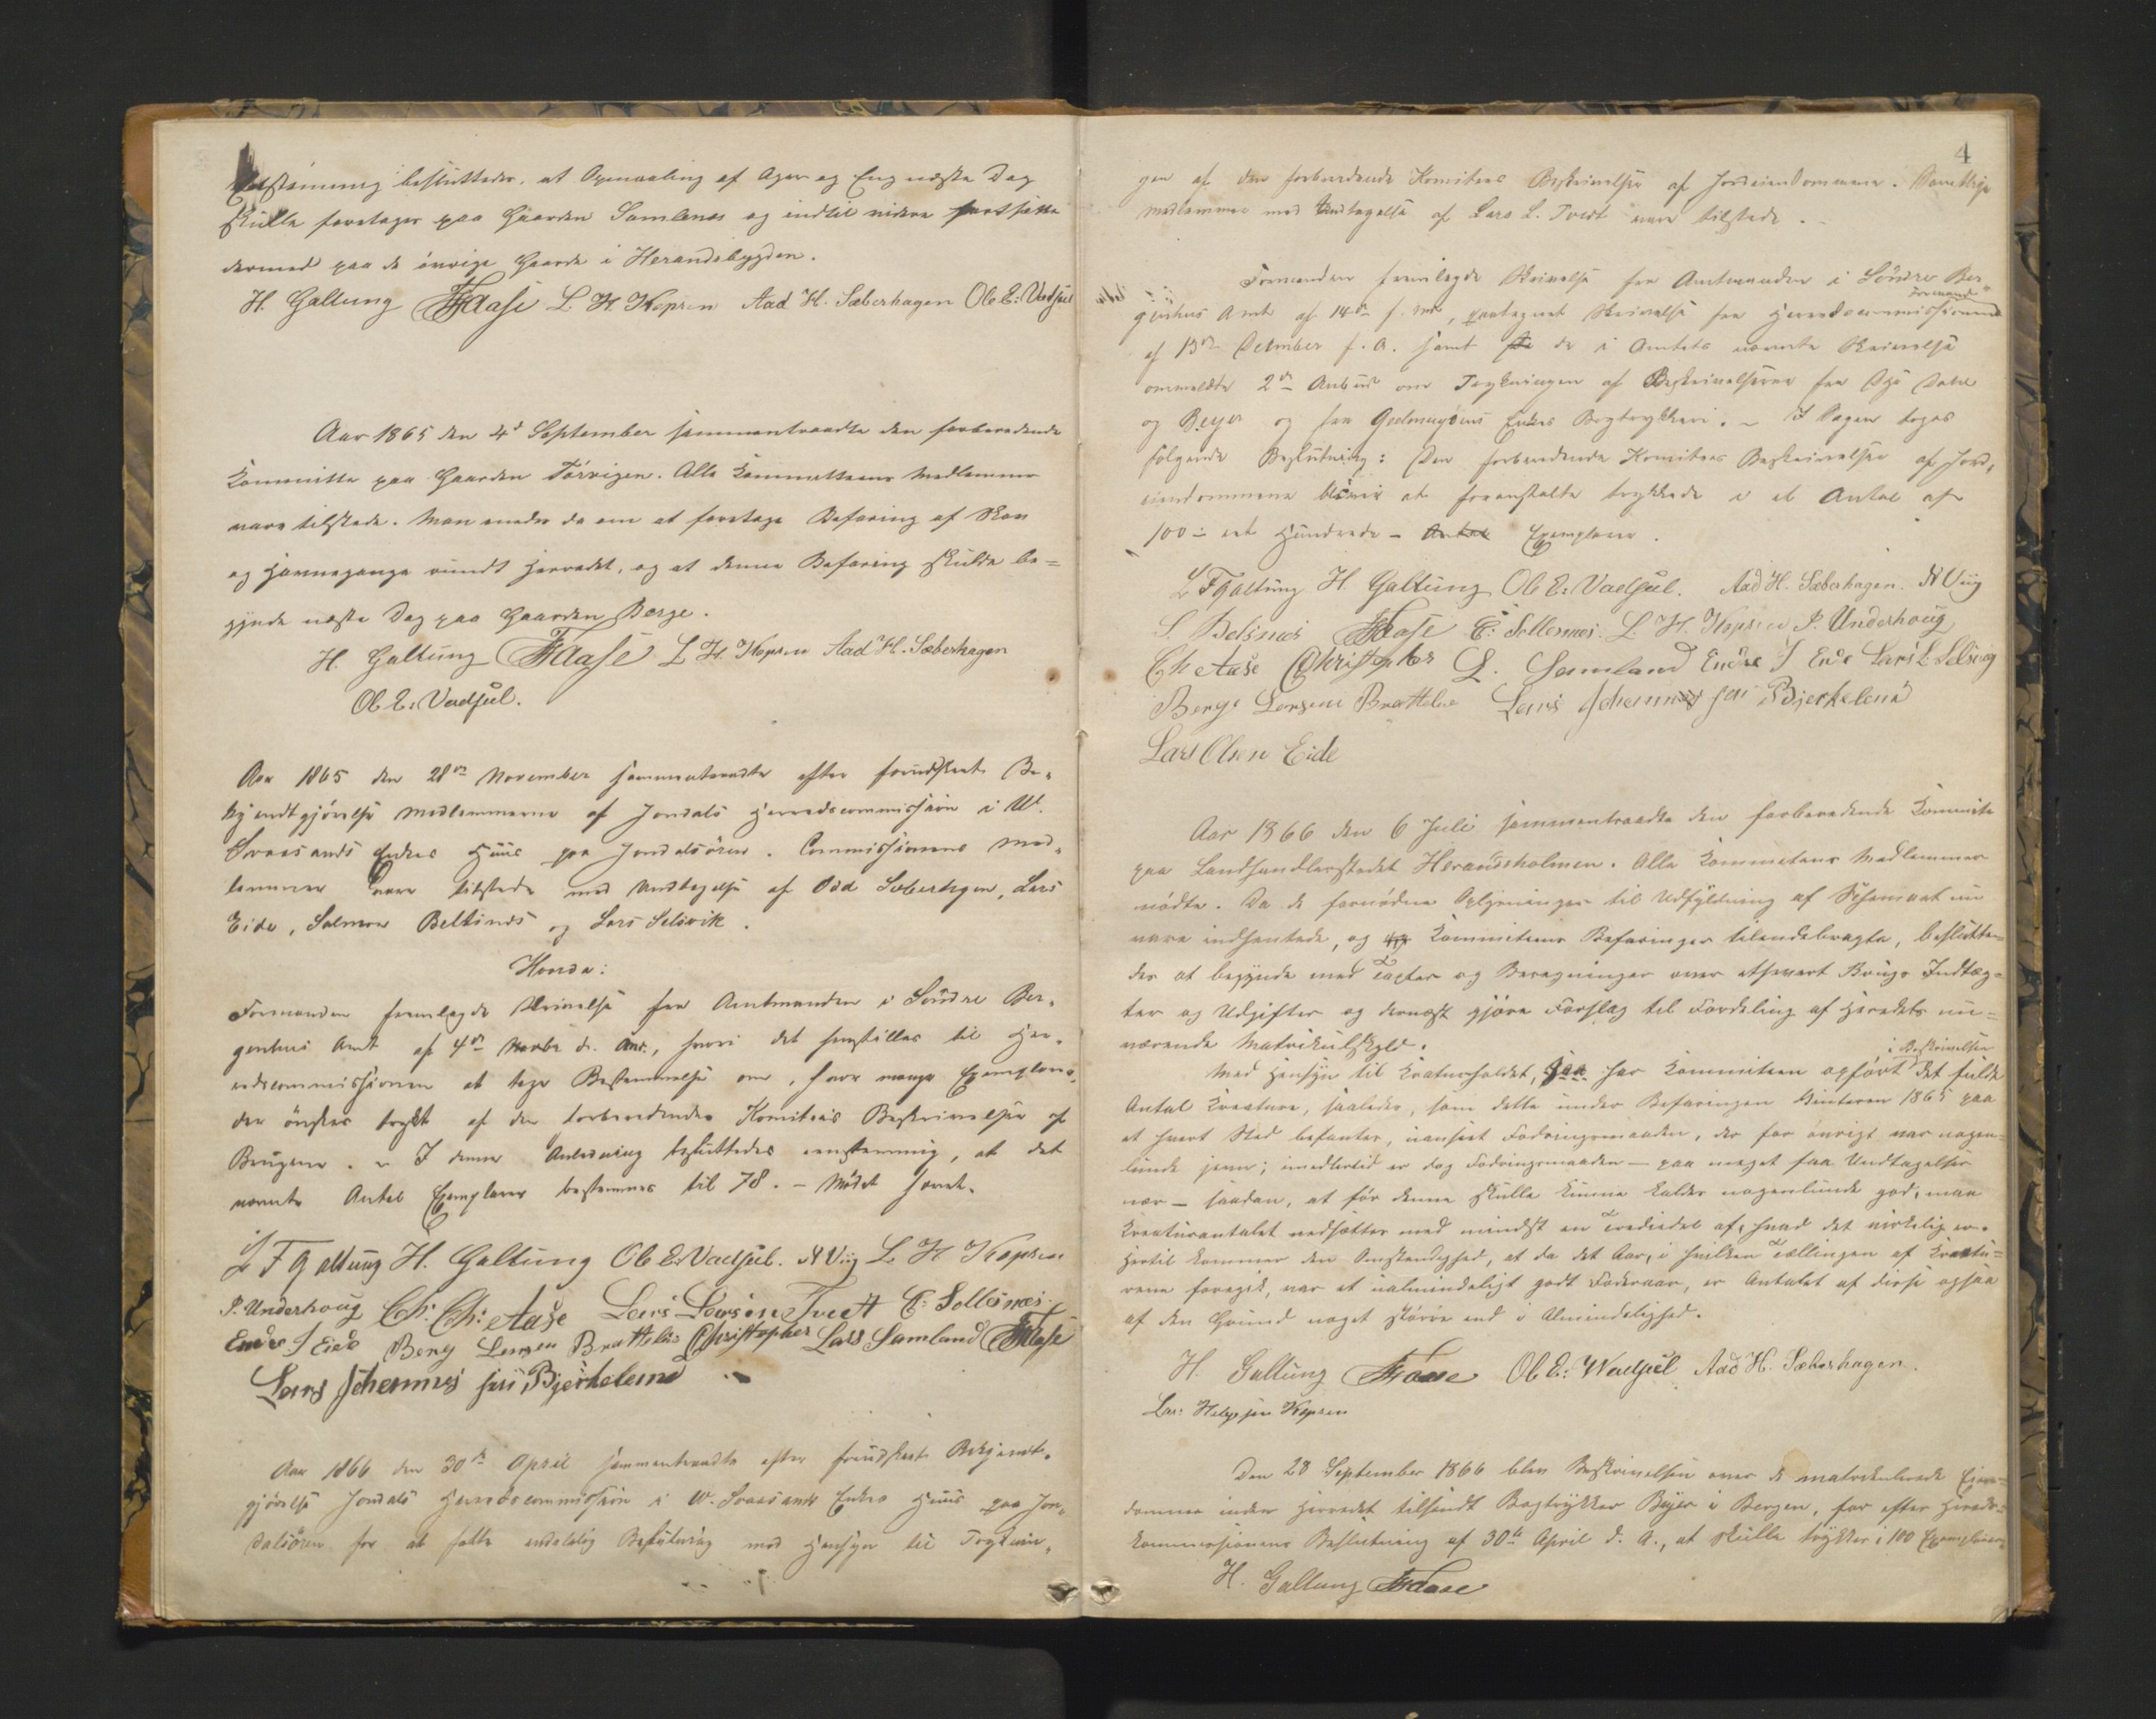 stemmig besluttedes, at Opmaaling af Ager og Eng næste Dag
skulle foretages paa Gaarden Samlenæs og indtil videre fortsætte
dermed paa de øvrige Gaarde i Herandsbygden.
H. Galtung FAase L. H. Kopren Aad H. Sæberhagen Ole E: Vadsel
Aar 1865 den 4de September sammentraadte den forberedende
Committe paa Gaarden Törvigen. Alle Committeens Medlemmer
vare tilstede. Man enedes da om at foretage Befaring af Skov
og Havnegange rundt Herredet, og at denne Befaring skulde be=
gynde næste Dag paa Gaarden Berge.
H. Galtung FAase L H. Kopren Aad H. Sæberhagen
Ol E: Vadsel.
Aar 1865 den 28de November sammentraadte efter forudskeet Be-
kjendtgjörelse Medlemmerne af Jondals Herredscommission i W.
Svaasands Enkes Huus paa Jondalsören. Commissionens Med-
lemmer vare tilstede med Undtagelse af Odd Sæberhagen, Lars
Eide, Salmon Belsnes og Lars Selsvik.
Hvorda:
Formanden fremlagde Skrivelse fra Amtmanden i Söndre Ber-
genhus Amt af 4de Novbr d. Aar., hvori det henstilles til Her-
redscommissionen at tage Bestemmelse om, hvor mange Exemplarer,
der önskes trykt af den forberedende Komitees Beskrivelse af
Brugene. – I denne Anledning besluttedes eenstemmig, at det
nævnte Antal Exemplarer bestemmes til 78. – Mödet hævet.
L F Galtung H. Galtung Ole E: Vadsel. N Viig L H Kopren
P. Underhoug Ch: Ch: Aase Lars Larsen Tvedt E: Sollesnæs.
Endre J Eide Berge Larsen Brattebø Christopher Lars Samland FAase
Lars Johannes søn Bjerkelend
Aar 1866 den 30te April sammentraadte efter forudskeet Bekjendt-
gjörelse Jondals Herredscommission i W. Svaasands Enkes Huus paa Jon-
dalsören for at fatte endelelig Beslutning med Hensyn til Tryknin-
4
gen af den forberedende Komitees Beskrivelse af Jordeiendommene. Samtlige
Medlemmer med Undtagelse af Lars L. Tvedt vare tilstede. –
Formanden fremlagde Skrivelse fra Amtmanden i Söndre Ber-
genhus Amt af 14de f. Md, paategnet Skrivelse fra Herredscommissionens Formand
af 13de December f. A. samt de i Amtets nævnte Skrivelse
ommeldte 2de Anbud om Trykningen af Beskrivelserne fra Dhr Dahl
og Beyer og fra Geelmuydens Enkes Bogtrykkeri. – I Sagen toges
fölgende Beslutning: Den forberedende Komitees Beskrivelse af Jord-
eiendommene bliver at foranstalte trykkede i et Antal af
100 – et Hundrede – Antal Exemplarer.
L F Galtung H. Galtung Ole E: Vadsel. Aad H. Sæberhagen. N Viig
S. Belsnæs FAase E: Sollesnæs. L. H. Kopren P. Underhoug
Ch Aase Christopher L. Samland Endre J Eide Lars L Selsvig
Berge Larsen Brattebø Lars Johannes søn Bjerkelend
Lars Olsen Eide
Aar 1866 den 6 Juli sammentraadte den forberedende Committe
paa Landhandlerstedet Herandsholmen. Alle Committeens Medlemmer
mödte. Da de fornødne Oplysninger til Udfyldning af Schemaet nu
vare indhentede, og Committeens Befaringer tilendebragte, beslutte-
des at begynde med Taxter og Beregninger over ethvert Brugs Indtæg-
ter og Udgifter og dernæst gjöre Forslag til Fordeling af Herredets nu-
værende Matrikulskyld.
Med Hensyn til Kreaturholdet, saa har Committeen opfört i Beskrivelsen det fulde
Antal Kreature, saaledes, som dette under Befaringen Vinteren 1865 paa
et hvert Sted befantes, uanseet Fodringsmaaden, der for övrigt var nogen-
lunde jevn; imedlertid er dog Fodringsmaaden – paa meget faa Undtagelser
nær – saadan, at för denne skulle kunne kaldes nogenlunde god, maa
Kreaturantalet nedsættes med mindst en Trediedel af, hvad det virkelig er.
Hertil kommer den Omstendighed, at da det Aar, i hvilken Tællingen af Kreatu-
rene foregik, var et ualmindeligt godt Foderaar, er Antalet af disse ogsaa
af den Grund noget större end i Almindelighed.
H. Galtung FAase Ol E: Wadsel Aad H. Sæberhagen.
Lars Helgesen Kopren
Den 28 September 1866 blev Beskrivelsen over de matrikulerede Eien-
domme inden Herredet tilsendt Bogtrykker Beyer i Bergen, for efter Herreds-
kommissionens Beslutning af 30te April d. A., at skulle trykkes i 100 Exemplarer.
H. Galtung FAase